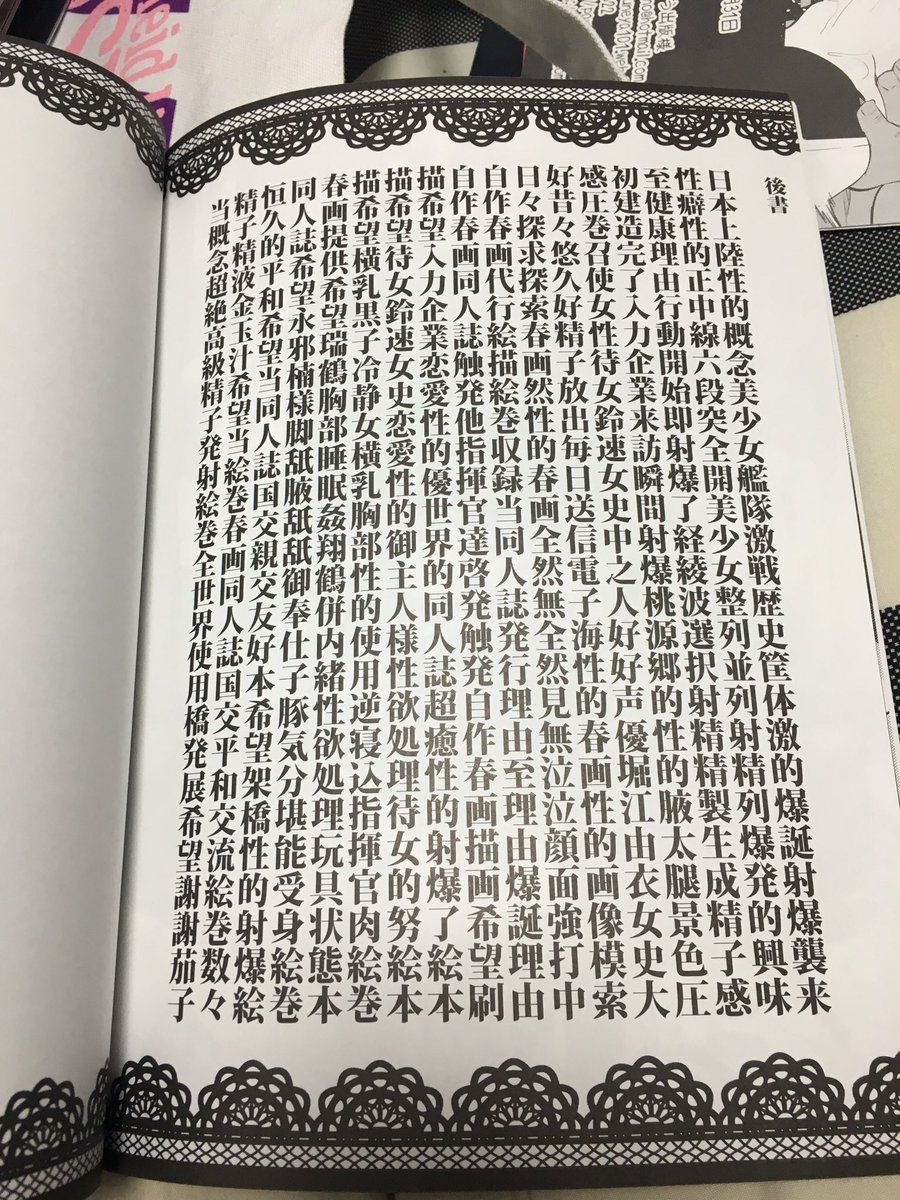 後書
日本上陸性的概念美少女艦隊激戦歴史筐体激的爆誕射爆襲来
性癖性的正中線六段突全開美少女整列並列射精列爆発的興味
至健康理由行動開始即射爆了経綾波選択射精精製生成精子感
初建造完了入力企業来訪瞬間射爆桃源郷的性的腋太腿景色圧
感圧巻召使女性待女鈴速女史中之人好好声優堀江由衣女史大
好昔々悠久好精子放出毎日送信電子海性的春画性的画像模索
日々探求探索春画然性的春画全然無全然見無泣泣顔面強打中
自作春画代行絵描絵巻収録当同人誌発行理由至理由爆誕理由
自作春画同人誌触発他指揮官達啓発触発自作春画描画希望刷
描希望入力企業恋愛性的優世界的同人誌超癒性的射爆了絵本
描希望待女鈴速女史恋愛性的御主人様性欲処理待女的努絵本
描希望横乳黒子冷静女横乳胸部性的使用逆寝込指揮官肉絵巻
春画提供希望瑞鶴胸部睡眠姦翔鶴併内緒性欲処理玩具状態本
同人誌希望永邪楠様脚舐腋舐舐御奉仕子豚気分堪能受身絵巻
恒久的平和希望当同人誌国交親交友好本希望架橋性的射爆絵
精子精液金玉汁希望当絵巻春画同人誌国交平和交流絵巻数々
当概念超絶高級精子発射絵巻全世界使用橋発展希望謝謝茄子
ツ出版様
hotmail.com